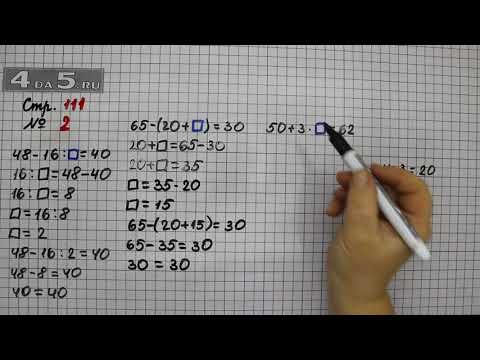 4DA5.RU
Стр. 111
№ 2
48-16:□=40
16:□=48-40
16:□=8
□=16:8
□=2
48-16:2=40
48-8=40
40=40
65-(20+□)=30
20+□=65-30
20+□=35
□=35-20
□=15
65-(20+15)=30
65-35=30
30=30
50+3·□ 62
3=20